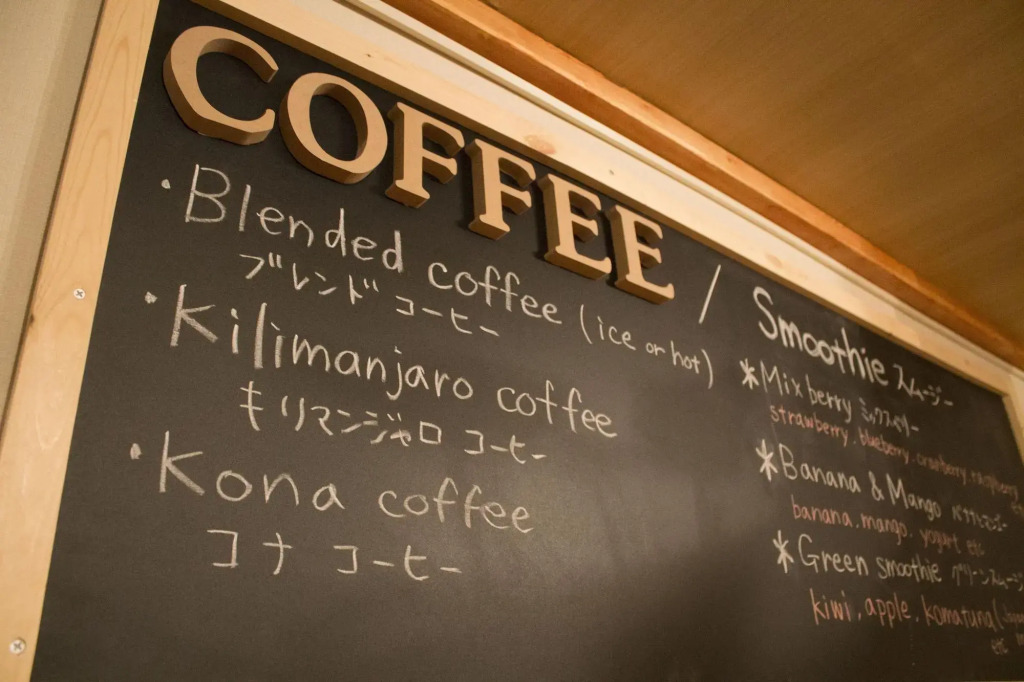 COFFEE /
・Blended coffee (ice or hot)
ブレンド コーヒー
・Kilimanjaro coffee
キリマンジャロ コーヒー
・Kona coffee
コナ コーヒー
Smoothie スムージー
*Mix berry ミックスベリー
strawberry. blueberry. cranberry. raspberry
*Banana & Mango
banana. mango. yogurt etc
*Green smoothie グリーンスムージー
kiwi. apple. komatuna(
etc